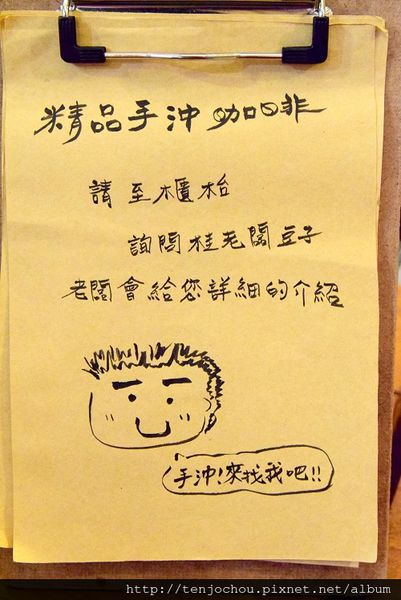 精品手沖咖啡
請至櫃枱
詢問桂老闆豆子
老闆會給您詳細的介紹
手沖!來找我吧!!
http://tenjochou.pixnet.net/album